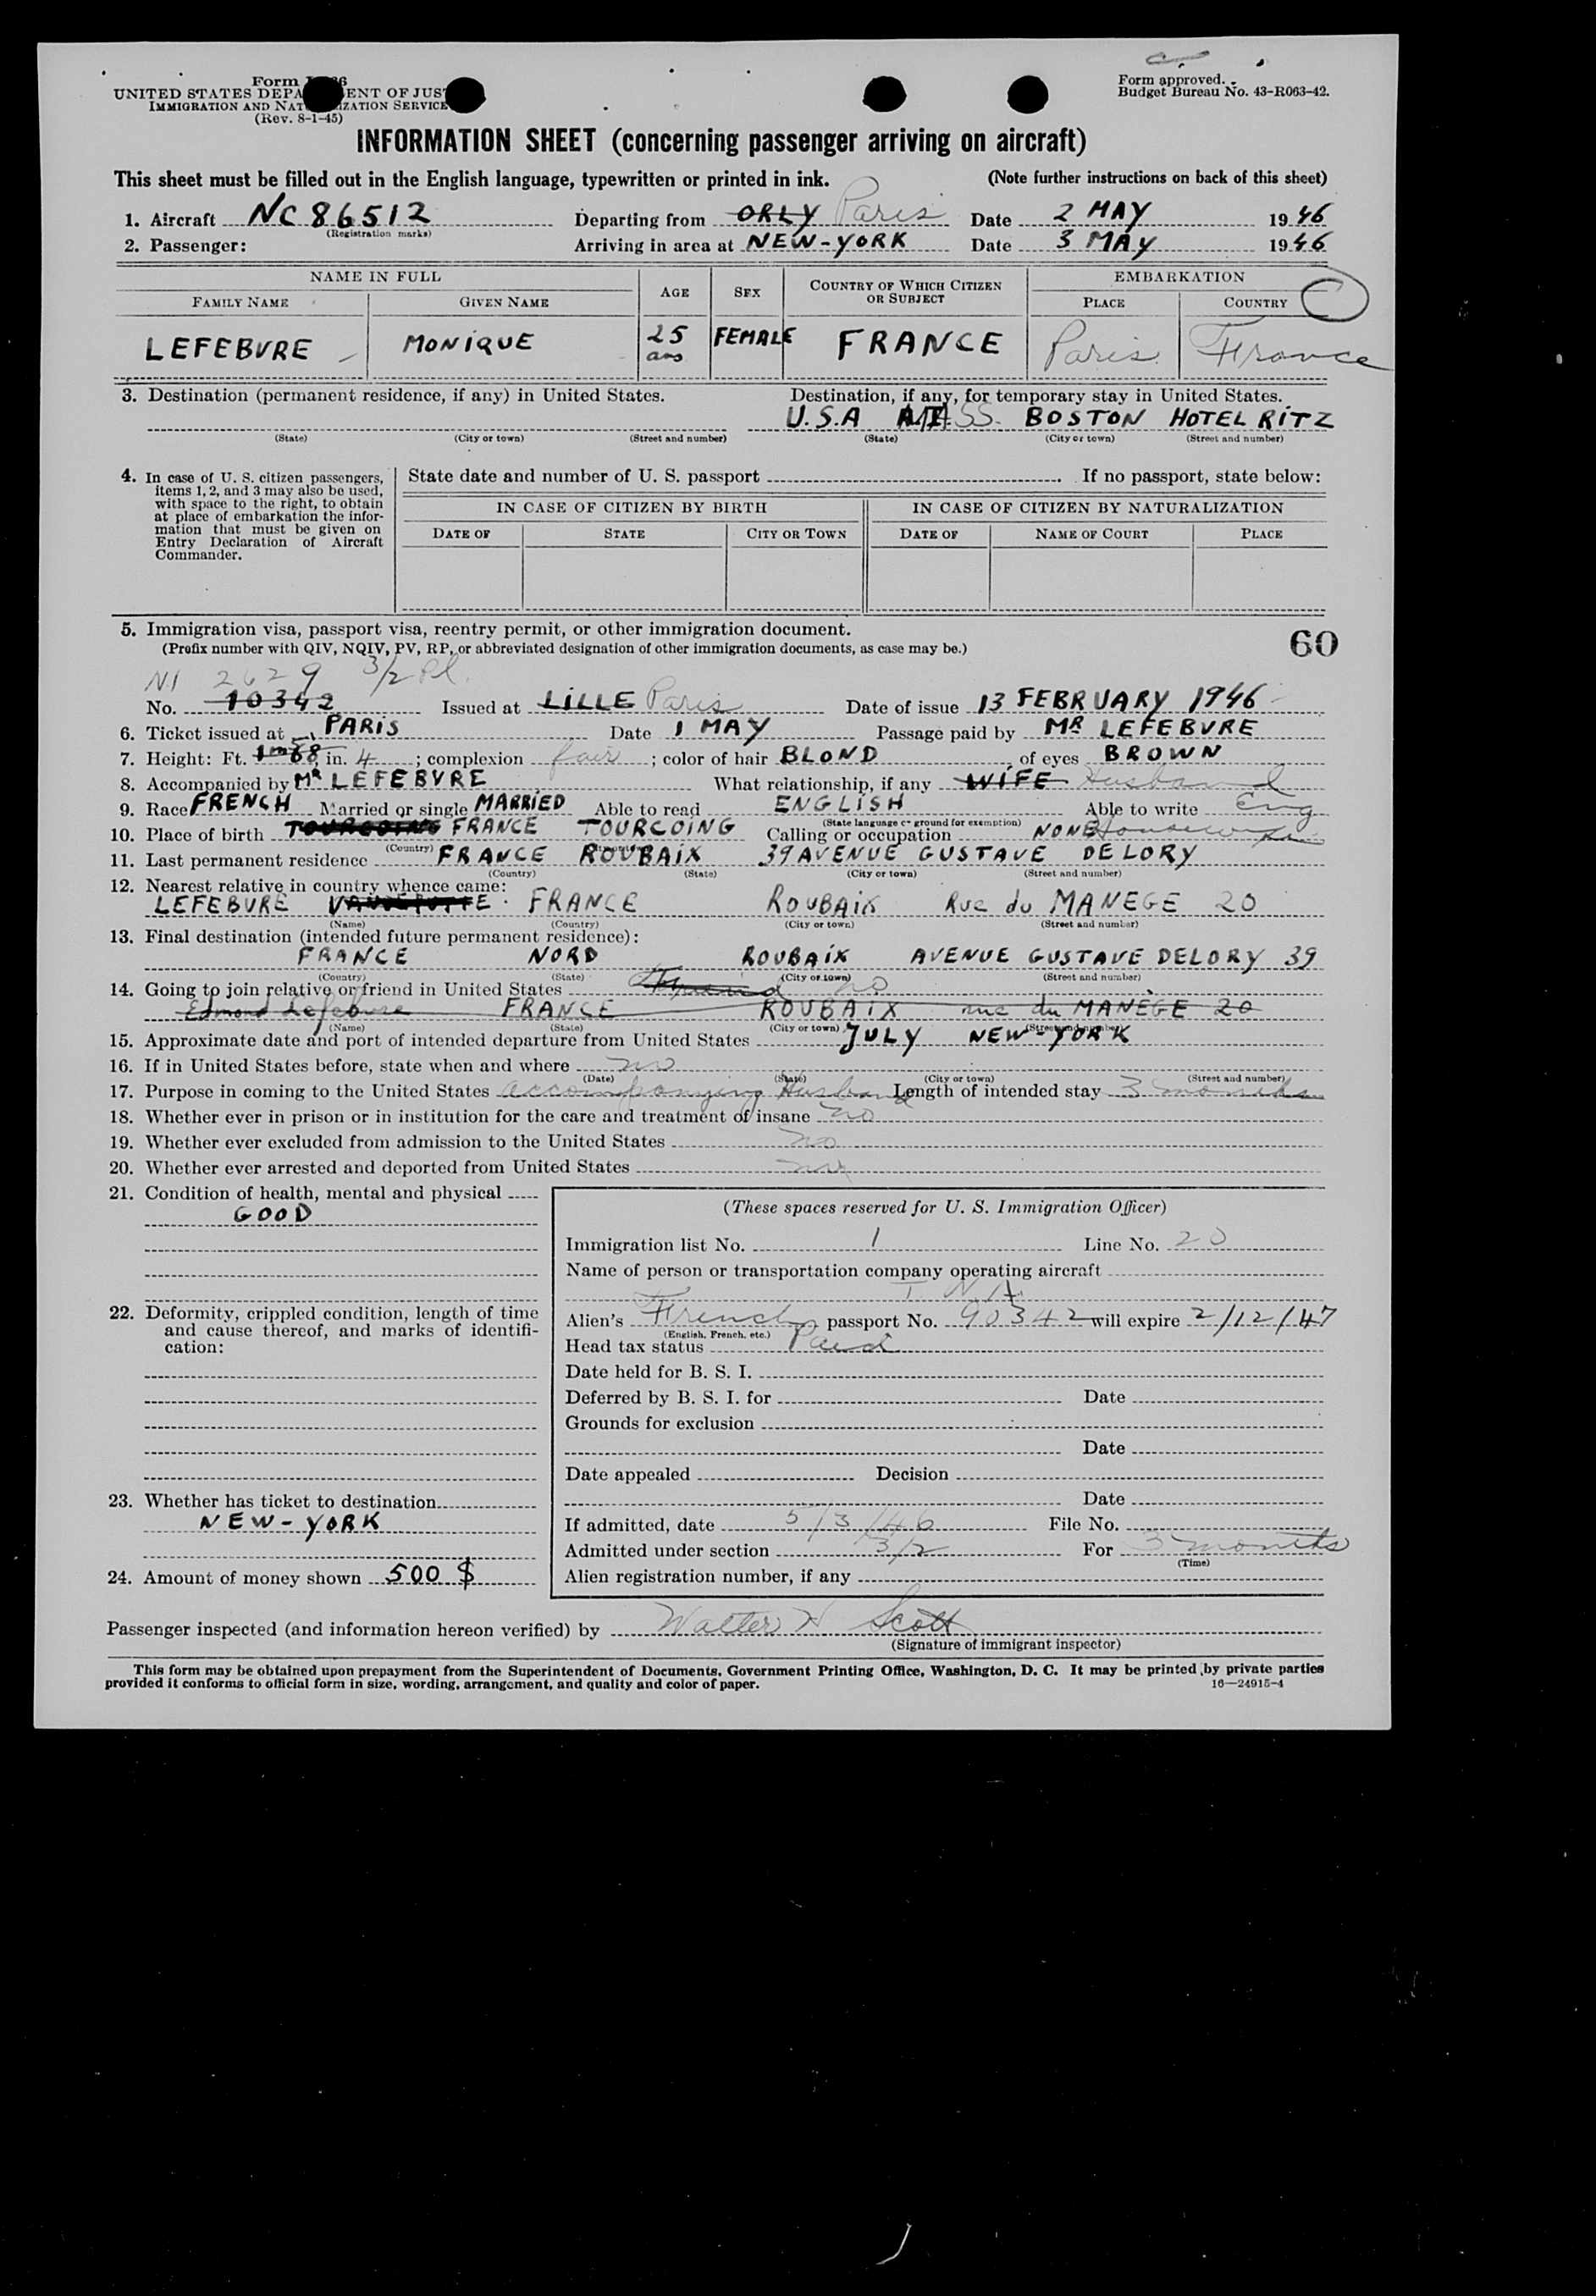 Form
UNITED STATES DEPA ENT OF JUS
IMMIGRATION AND NAT IZATION SERVICE
(Rev. 8-1-45)
Form approved.
Budget Bureau No. 43-R063-42.
INFORMATION SHEET (concerning passenger arriving on aircraft)
This sheet must be filled out in the English language, typewritten or printed in ink. (Note further instructions on back of this sheet)
1. Aircraft NC 86512 Departing from ORLY Paris Date 2 MAY 1946
(Registration marks)
2. Passenger: Arriving in area at NEW-YORK Date 3 MAY 1946
NAME IN FULL AGE SEX COUNTRY OF WHICH CITIZEN OR SUBJECT EMBARKATION
FAMILY NAME GIVEN NAME PLACE COUNTRY
LEFEBVRE MONIQUE 25 ans FEMALE FRANCE Paris France
3. Destination (permanent residence, if any) in United States. Destination, if any, for temporary stay in United States.
U.S.A MASS. BOSTON HOTEL RITZ
(State) (City or town) (Street and number) (State) (City or town) (Street and number)
4. In case of U. S. citizen passengers, items 1, 2, and 3 may also be used, with space to the right, to obtain at place of embarkation the information that must be given on Entry Declaration of Aircraft Commander.
State date and number of U. S. passport If no passport, state below:
IN CASE OF CITIZEN BY BIRTH IN CASE OF CITIZEN BY NATURALIZATION
DATE OF STATE CITY OR TOWN DATE OF NAME OF COURT PLACE
5. Immigration visa, passport visa, reentry permit, or other immigration document.
(Prefix number with QIV, NQIV, PV, RP, or abbreviated designation of other immigration documents, as case may be.)
60
NI 2629 3/2 Pl.
No. 10342 Issued at LILLE Paris Date of issue 13 FEBRUARY 1946
6. Ticket issued at PARIS Date 1 MAY Passage paid by MR LEFEBVRE
7. Height: Ft. 5 in. 4 ; complexion fair ; color of hair BLOND of eyes BROWN
8. Accompanied by MR LEFEBVRE What relationship, if any WIFE Husband
9. Race FRENCH Married or single MARRIED Able to read ENGLISH Able to write Eng
(State language or ground for exemption)
10. Place of birth TOURCOING FRANCE TOURCOING Calling or occupation NONE Housewife
(Country)
11. Last permanent residence FRANCE ROUBAIX 39 AVENUE GUSTAVE DELORY
(Country) (State) (City or town) (Street and number)
12. Nearest relative in country whence came:
LEFEBVRE VANDEPUTTE FRANCE ROUBAIX Rue du MANEGE 20
(Name) (Country) (City or town) (Street and number)
13. Final destination (intended future permanent residence):
FRANCE NORD ROUBAIX AVENUE GUSTAVE DELORY 39
(Country) (State) (City or town) (Street and number)
14. Going to join relative or friend in United States no
Edmond Lefebvre FRANCE ROUBAIX rue du MANÈGE 20
(Name) (State) (City or town) (Street and number)
15. Approximate date and port of intended departure from United States JULY NEW-YORK
16. If in United States before, state when and where no
(Date) (State) (City or town) (Street and number)
17. Purpose in coming to the United States accompanying Husband Length of intended stay 3 months
18. Whether ever in prison or in institution for the care and treatment of insane no
19. Whether ever excluded from admission to the United States no
20. Whether ever arrested and deported from United States no
21. Condition of health, mental and physical
GOOD
22. Deformity, crippled condition, length of time and cause thereof, and marks of identification:
23. Whether has ticket to destination
NEW-YORK
24. Amount of money shown 500 $
(These spaces reserved for U. S. Immigration Officer)
Immigration list No. 1 Line No. 20
Name of person or transportation company operating aircraft
Alien's French passport No. 90342 will expire 2/12/47
(English, French, etc.)
Head tax status Paid
Date held for B. S. I.
Deferred by B. S. I. for Date
Grounds for exclusion
Date
Date appealed Decision
Date
If admitted, date 5/3/46 File No.
Admitted under section 3/2 For 3 months
(Time)
Alien registration number, if any
Passenger inspected (and information hereon verified) by Walter H Scott
(Signature of immigrant inspector)
This form may be obtained upon prepayment from the Superintendent of Documents, Government Printing Office, Washington, D. C. It may be printed by private parties
provided it conforms to official form in size, wording, arrangement, and quality and color of paper. 16—24915-4